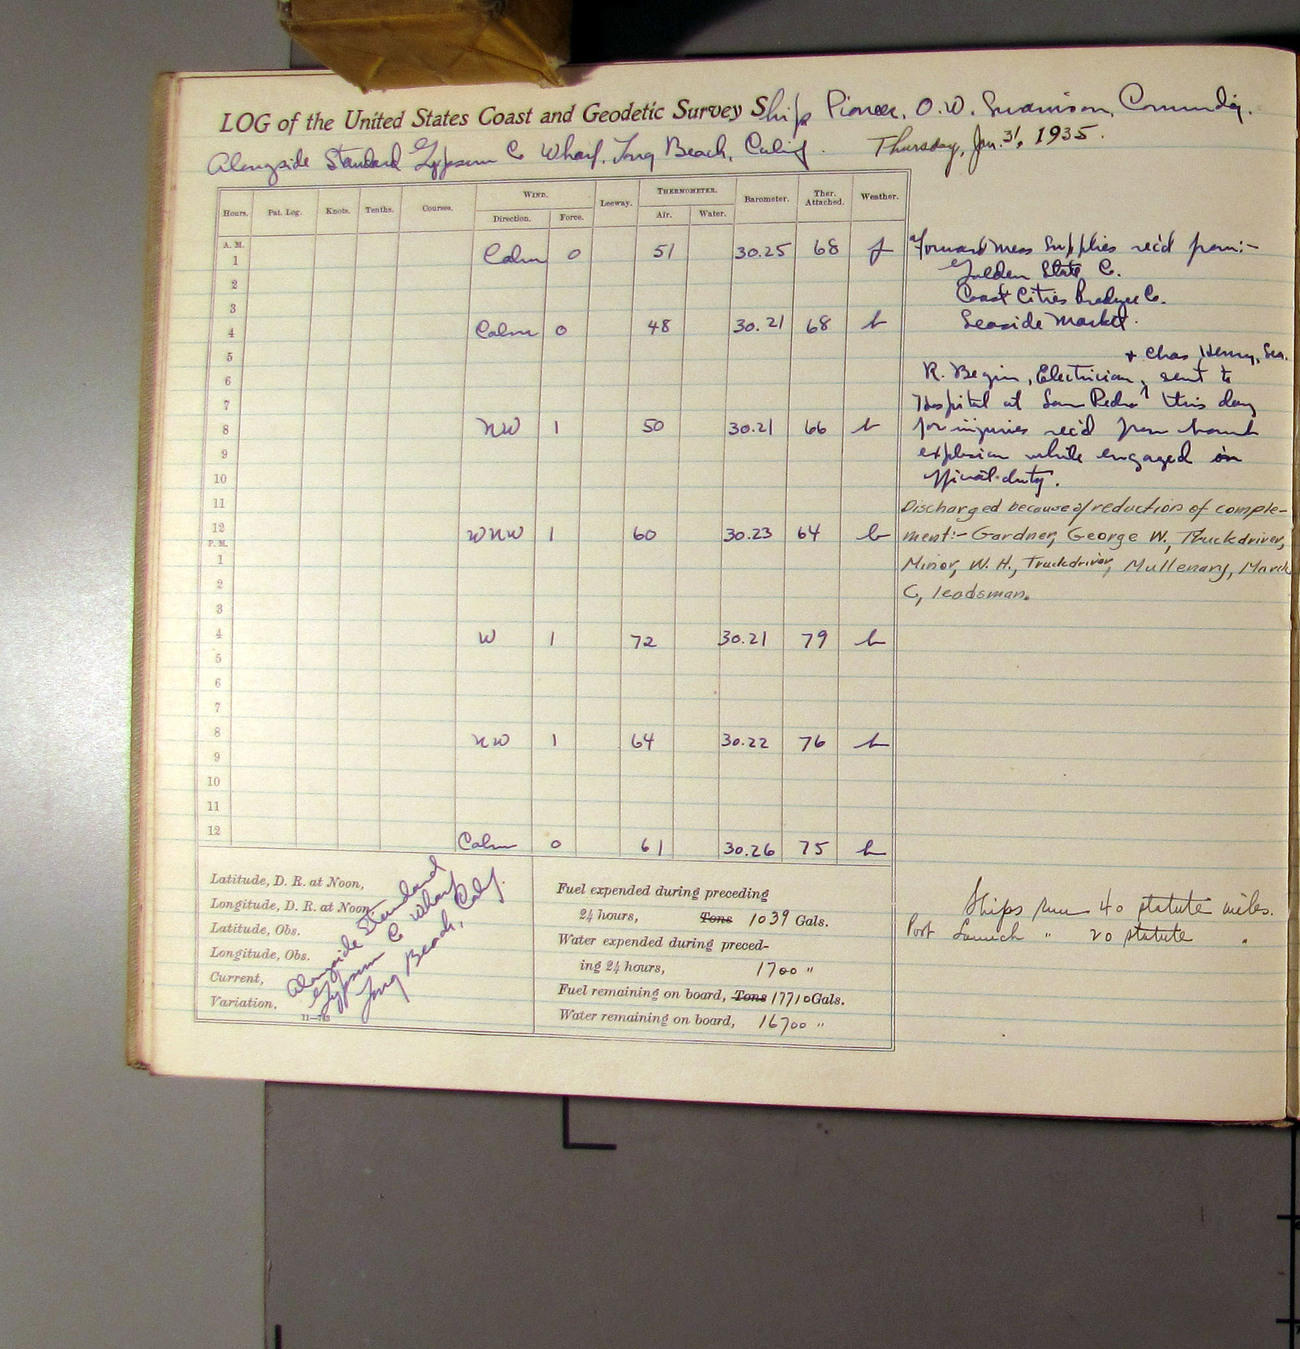 LOG of the United States Coast and Geodetic Survey Ship Pioneer, O.W. Swainson, Comm'd'g.
Alongside Standard Gypsum Co Wharf, Long Beach, Calif. Thursday, Jan. 31, 1935.
Hours. Pat. Log. Knots. Tenths. Courses. WIND. Leeway. THERMOMETER. Barometer. Ther. Attached. Weather.
Direction. Force. Air. Water.
A. M.
1 Calm 0 51 30.25 68 f
2
3
4 Calm 0 48 30.21 68 b
5
6
7
8 NW 1 50 30.21 66 b
9
10
11
12 WNW 1 60 30.23 64 b
P. M.
1
2
3
4 W 1 72 30.21 79 b
5
6
7
8 NW 1 64 30.22 76 b
9
10
11
12 Calm 0 61 30.26 75 b
Forward mess supplies rec'd from:-
Golden State Co.
Coast Cities Produce Co.
Seaside Market.
+ Chas Henry, Sea.
R. Begin, Electrician, sent to
Hospital at San Pedro this day
for injuries rec'd from
explosion while engaged in
official duty.
Discharged because of reduction of comple-
ment:- Gardner, George W., Truckdriver,
Minor, W. H., Truckdriver, Mullenary,
C, leadsman.
Ships run 40 statute miles.
Port Launch " 20 statute "
Latitude, D. R. at Noon,
Longitude, D. R. at Noon
Latitude, Obs.
Longitude, Obs.
Current,
Variation.
Alongside Standard
Gypsum Co Wharf
Long Beach, Calif.
Fuel expended during preceding
24 hours, Tons 1039 Gals.
Water expended during preced-
ing 24 hours, 1700 "
Fuel remaining on board, Tons 17710 Gals.
Water remaining on board, 16700 "